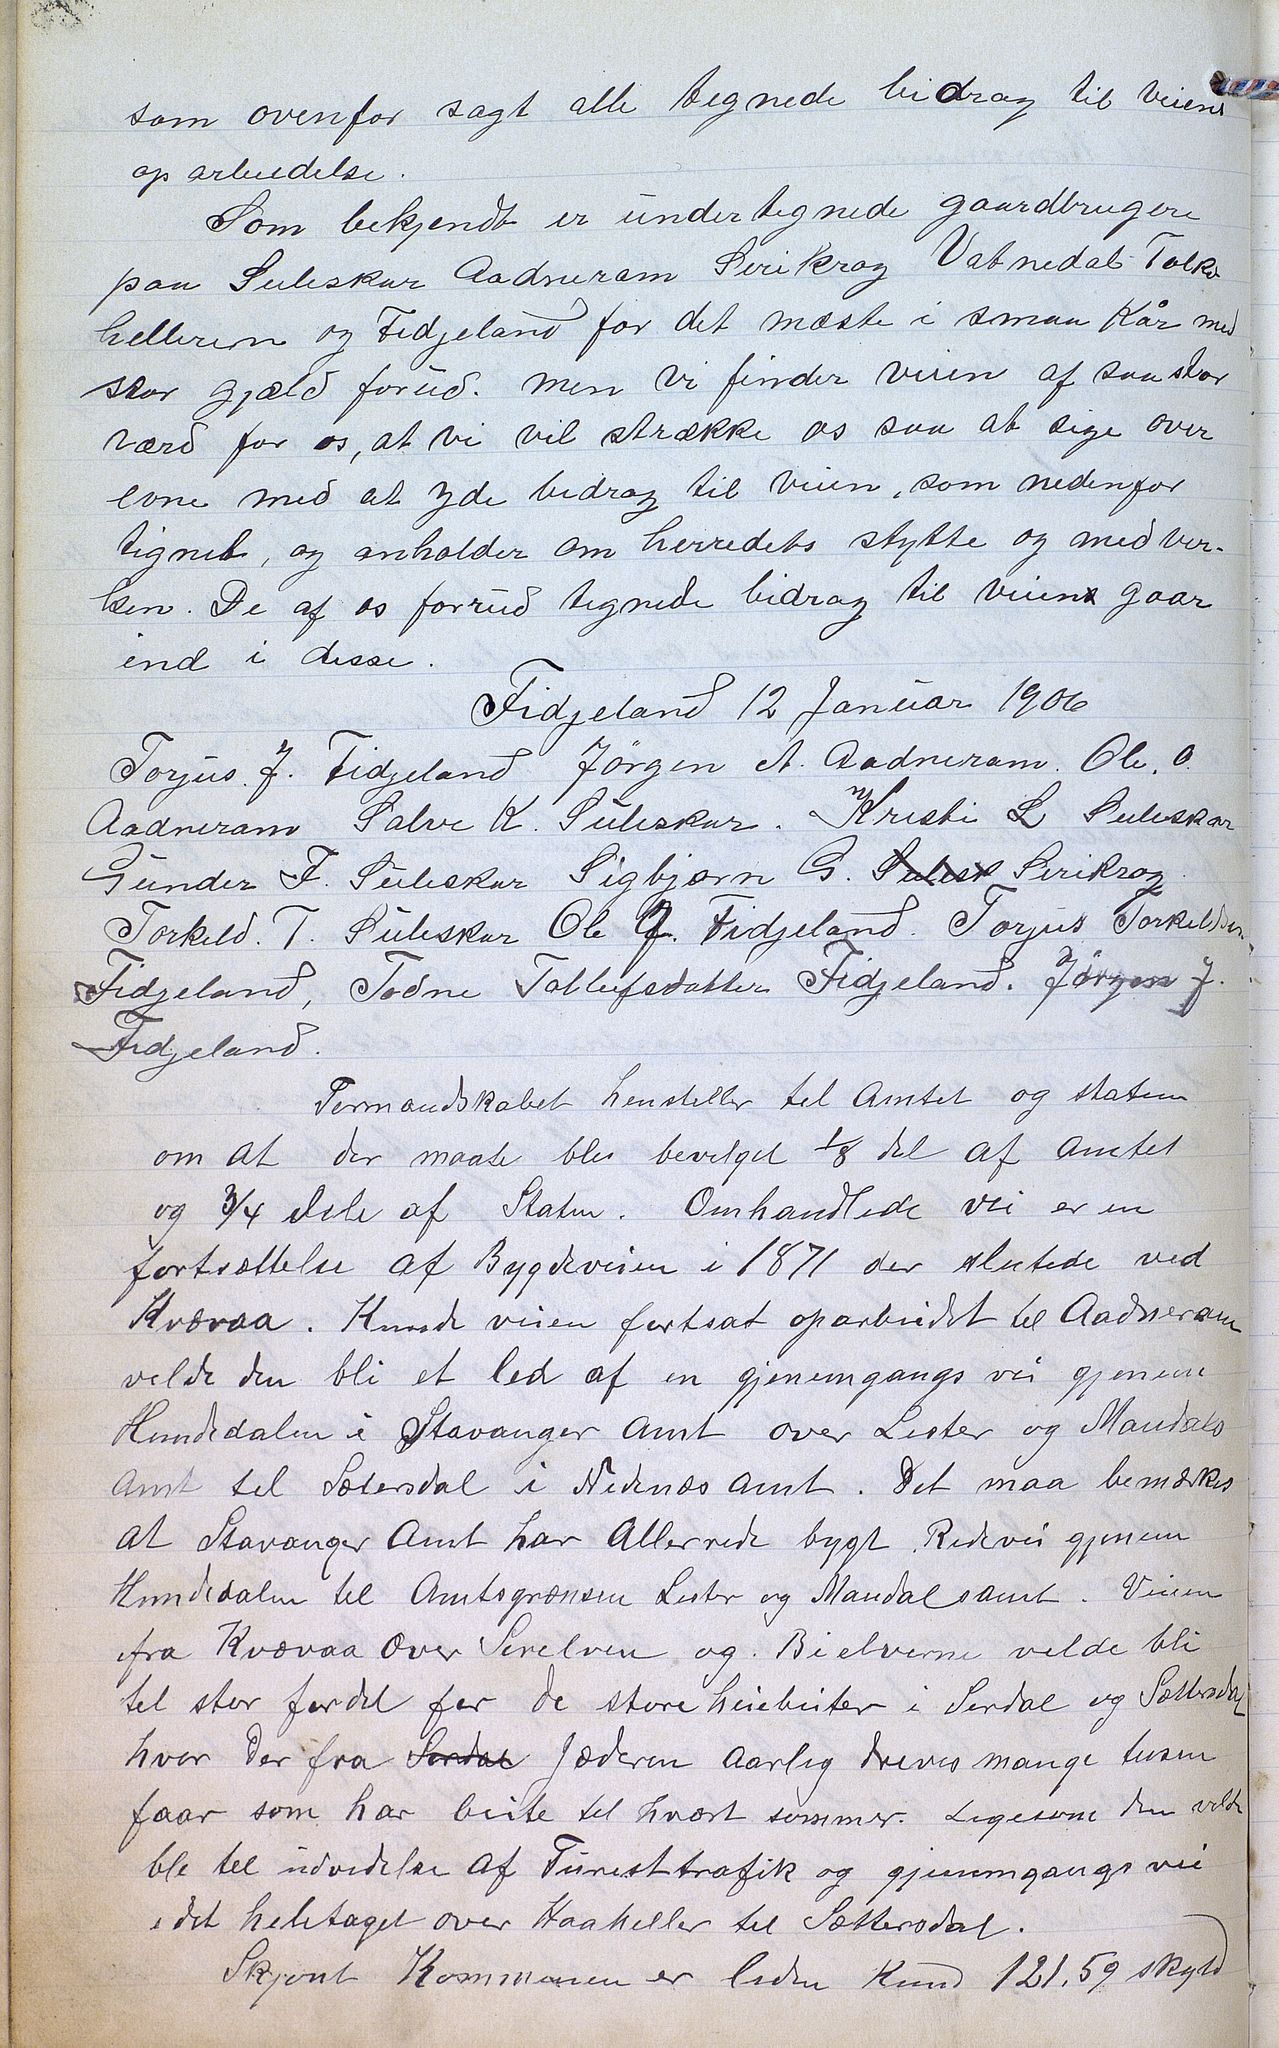 som ovenfor sagt alle tegnede bidrag til veiens
oparbeidelse.
Som bekjendt er undertegnede gaardbrugere
paa Suleskar Aadneram Serikrag Vatnedal Tolks
helleren og Fidjeland for det mæste i smaa Kår med
stor gjæld forud. men vi finder veien af saa stor
værd for os, at vi vil strække os saa at sige over
evne med at yde bidrag til veien, som nedenfor
tignet, og anholder om herredets støtte og medver-
ken. De af os forrud tegnede bidrag til veiens gaar
ind i disse.
Fidjeland 12 Januar 1906
Torjus J. Fidjeland Jörgen A. Aadneram. Ole. O.
Aadneram Salve K. Suleskar. Kristi L Suleskar
Gunder F. Suleskar Sigbjørn G. Sulesk Serikrag
Torkeld. T. Suleskar Ole J. Fidjeland. Torjus Torkeldsen
Fidjeland, Todne Tollefsdatter Fidjeland. Jörgen J.
Fidjeland.
Formandskabet henstiller til Amtet og staten
om at der maate blir bevelget 1/8 del af amtet
og 3/4 dele af Staten. Omhandlede vei er en
fortsættelse af Bygdeveien i 1871 der slutede ved
Kvævaa. Kunde veien fortsat oparbeidet til Aadneram
velde den bli et led af en gjenemgangs vei gjenem
Hundedalen i Stavanger Amt over Lister og Mandals
Amt til Sætersdal i Nedenæs Amt. Det maa bemærkes
at Stavanger Amt har Allerrede bygt Redevei gjenem
Hundedalen til Amtsgrænsen Lister og Mandalsamt. Veien
fra Kvævaa over Serelven og Bielverne velde bli
tel stor fordel for de store heiebeiter i Serdal og Sættersdal
hvor der fra Serdal Jæderen Aarlig dreves mange tusen
faar som har beite tel hvært sommer. Ligesom den velde
ble tel udvidelse af Turesttrafik og gjenemgangs vei
i det heletaget over Haaheller tel Sættersdal.
Skjønt Kommunen er leden Kund 121,59 skyld